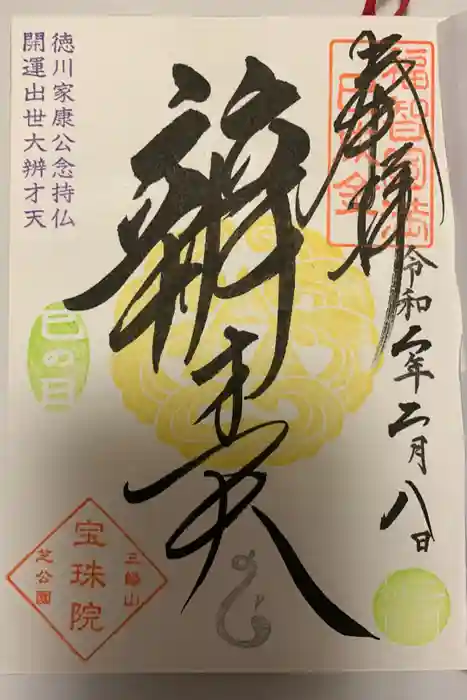 奉拝
令和二年二月八日
辨才天
徳川家康公念持仏
開運出世大辨才天
巳の日
三縁山
宝珠院
芝公園